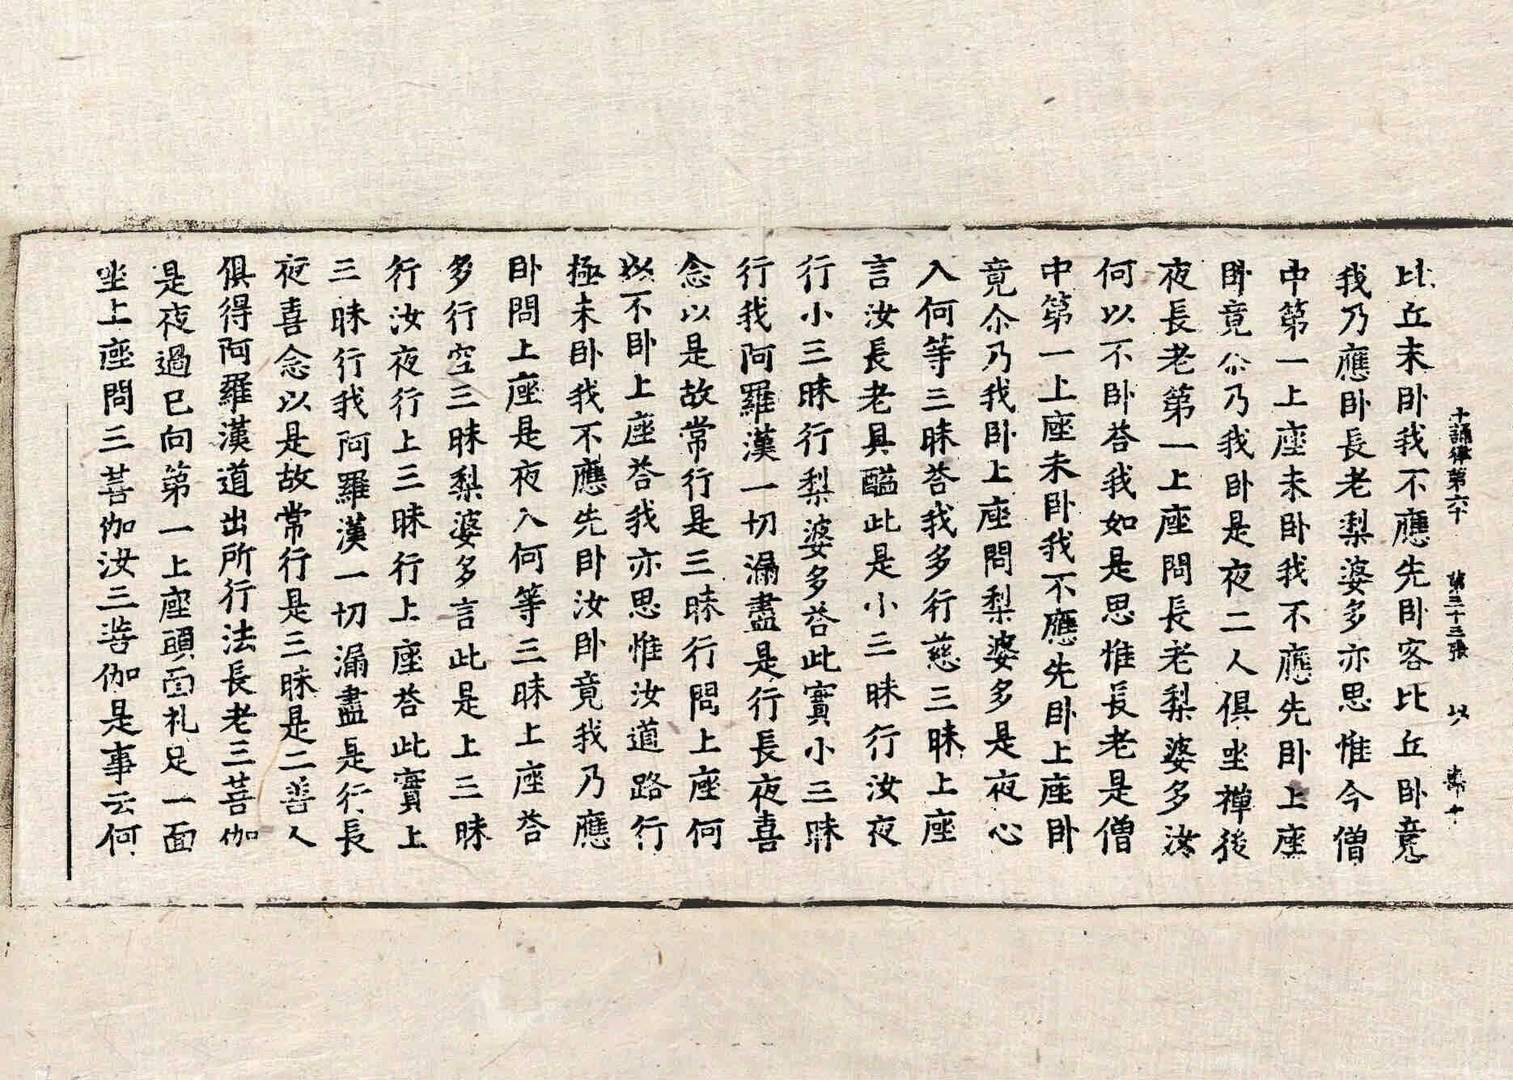 十誦律第六十 第三十三張 以
比丘未卧我不應先卧客比丘卧竟
我乃應卧長老梨婆多亦思惟今僧
中第一上座未卧我不應先卧上座
卧竟尒乃我卧是夜二人俱坐禪後
夜長老第一上座問長老梨婆多汝
何以不卧荅我如是思惟長老是僧
中第一上座未卧我不應先卧上座卧
竟尒乃我卧上座問梨婆多是夜心
入何等三昧荅我多行慈三昧上座
言汝長老具醯此是小三昧行汝夜
行小三昧行梨婆多荅此實小三昧
行我阿羅漢一切漏盡是行長夜喜
念以是故常行是三昧行問上座何
以不卧上座荅我亦思惟汝道路行
極未卧我不應先卧汝卧竟我乃應
卧問上座是夜入何等三昧上座荅
多行空三昧梨婆多言此是上三昧
行汝夜行上三昧行上座荅此實上
三昧行我阿羅漢一切漏盡是行長
夜喜念以是故常行是三昧是二善人
俱得阿羅漢道出所行法長老三菩伽
是夜過已向第一上座頭面礼足一面
坐上座問三菩伽汝三菩伽是事云何